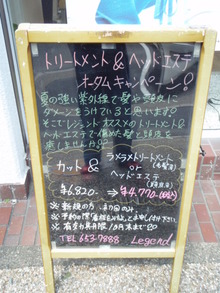 トリートメント & ヘッドエステ
オータムキャンペーン!
夏の強い紫外線で髪や頭皮に
ダメージをうけていると思います。
そこでレジェンドオススメのトリートメント&
ヘッドエステで傷めた髪と頭皮を
癒しませんか?
カット & ラメラメトリートメント
or
ヘッドエステ
¥6,820 → ¥4,770(税込)
※ 新規の方、初回のみ
※ 予約の際「看板を見た」とお申し付け下さい。
※ 有効期限 10月末まで
TEL 653-7888 Legend